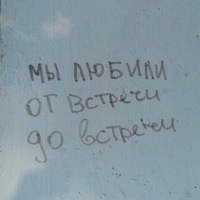 МЫ ЛЮБИЛИ
ОТ встречи
до встречи